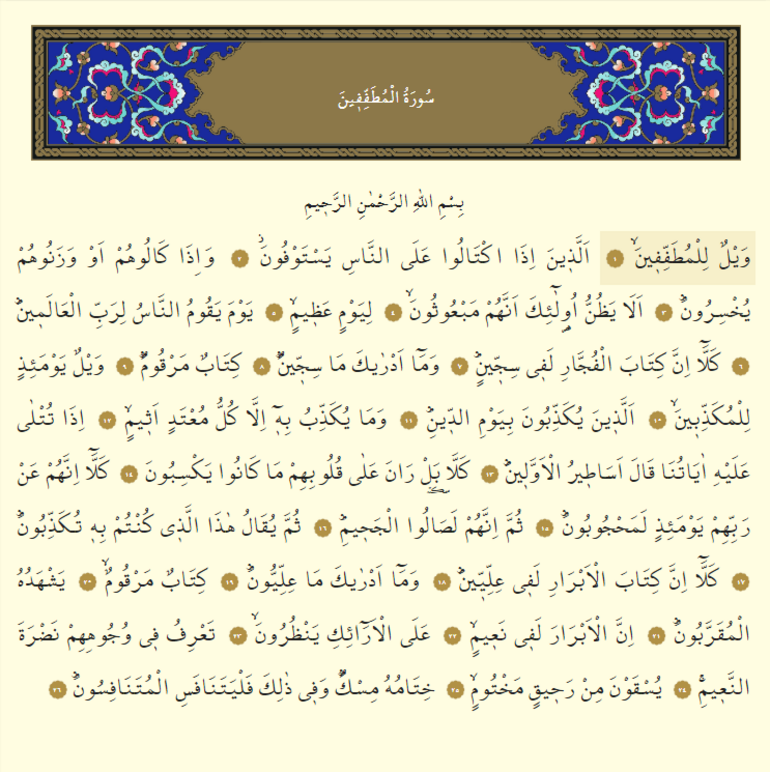 سُورَةُ الْمُطَفِّف۪ينَ
بِسْمِ اللّٰهِ الرَّحْمٰنِ الرَّح۪يمِ
وَيْلٌ لِلْمُطَفِّف۪ينَۙ ﴿١﴾ اَلَّذ۪ينَ اِذَا اكْتَالُوا عَلَى النَّاسِ يَسْتَوْفُونَۘ ﴿٢﴾ وَاِذَا كَالُوهُمْ اَوْ وَزَنُوهُمْ
يُخْسِرُونَۜ ﴿٣﴾ اَلَا يَظُنُّ اُو۬لٰٓئِكَ اَنَّهُمْ مَبْعُوثُونَۙ ﴿٤﴾ لِيَوْمٍ عَظ۪يمٍۙ ﴿٥﴾ يَوْمَ يَقُومُ النَّاسُ لِرَبِّ الْعَالَم۪ينَۜ
﴿٦﴾ كَلَّٓا اِنَّ كِتَابَ الْفُجَّارِ لَف۪ي سِجّ۪ينٍۜ ﴿٧﴾ وَمَٓا اَدْرٰيكَ مَا سِجّ۪ينٌۜ ﴿٨﴾ كِتَابٌ مَرْقُومٌۜ ﴿٩﴾ وَيْلٌ يَوْمَئِذٍ
لِلْمُكَذِّب۪ينَۙ ﴿١٠﴾ اَلَّذ۪ينَ يُكَذِّبُونَ بِيَوْمِ الدّ۪ينِۜ ﴿١١﴾ وَمَا يُكَذِّبُ بِه۪ٓ اِلَّا كُلُّ مُعْتَدٍ اَث۪يمٍۙ ﴿١٢﴾ اِذَا تُتْلٰى
عَلَيْهِ اٰيَاتُنَا قَالَ اَسَاط۪يرُ الْاَوَّل۪ينَۜ ﴿١٣﴾ كَلَّا بَلْ۔ رَانَ عَلٰى قُلُوبِهِمْ مَا كَانُوا يَكْسِبُونَ ﴿١٤﴾ كَلَّٓا اِنَّهُمْ عَنْ
رَبِّهِمْ يَوْمَئِذٍ لَمَحْجُوبُونَۜ ﴿١٥﴾ ثُمَّ اِنَّهُمْ لَصَالُوا الْجَح۪يمِۜ ﴿١٦﴾ ثُمَّ يُقَالُ هٰذَا الَّذ۪ي كُنْتُمْ بِه۪ تُكَذِّبُونَۜ
﴿١٧﴾ كَلَّٓا اِنَّ كِتَابَ الْاَبْرَارِ لَف۪ي عِلِّيّ۪ينَۜ ﴿١٨﴾ وَمَٓا اَدْرٰيكَ مَا عِلِّيُّونَۜ ﴿١٩﴾ كِتَابٌ مَرْقُومٌۙ ﴿٢٠﴾ يَشْهَدُهُ
الْمُقَرَّبُونَۜ ﴿٢١﴾ اِنَّ الْاَبْرَارَ لَف۪ي نَع۪يمٍۙ ﴿٢٢﴾ عَلَى الْاَرَٓائِكِ يَنْظُرُونَۙ ﴿٢٣﴾ تَعْرِفُ ف۪ي وُجُوهِهِمْ نَضْرَةَ
النَّع۪يمِۚ ﴿٢٤﴾ يُسْقَوْنَ مِنْ رَح۪يقٍ مَخْتُومٍۙ ﴿٢٥﴾ خِتَامُهُ مِسْكٌۜ وَف۪ي ذٰلِكَ فَلْيَتَنَافَسِ الْمُتَنَافِسُونَۜ ﴿٢٦﴾